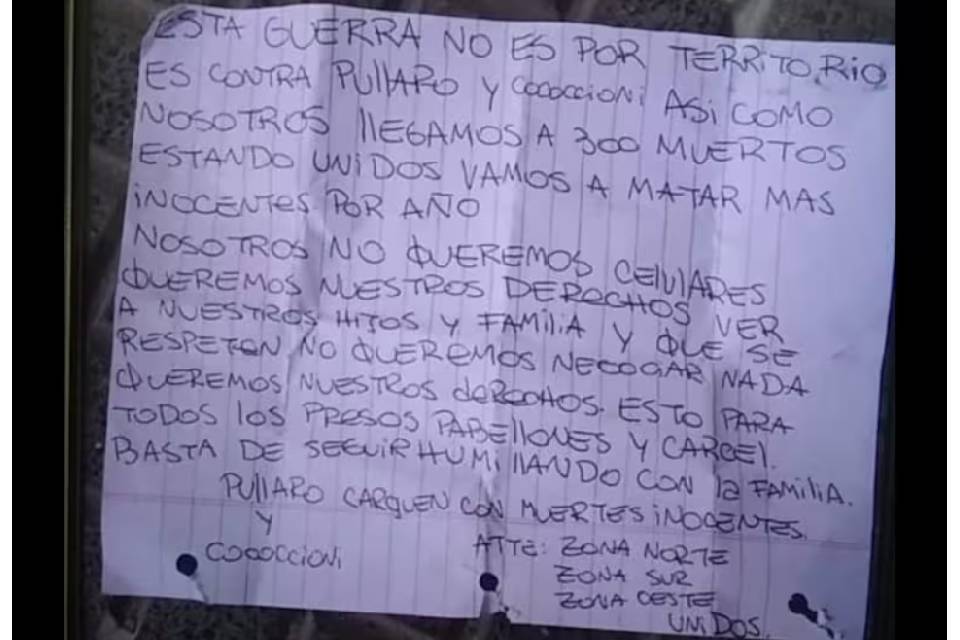 ESTA GUERRA NO ES POR TERRITORIO
ES CONTRA PULLARO Y COCOCCIONI ASI COMO
NOSOTROS LLEGAMOS A 300 MUERTOS
ESTANDO UNIDOS VAMOS A MATAR MAS
INOCENTES POR AÑO
NOSOTROS NO QUEREMOS CELULARES
QUEREMOS NUESTROS DERECHOS VER
A NUESTROS HIJOS Y FAMILIA Y QUE SE
RESPETEN NO QUEREMOS NECOGAR NADA
QUEREMOS NUESTROS DERECHOS. ESTO PARA
TODOS LOS PRESOS PABELLONES Y CARCEL.
BASTA DE SEGUIR HUMILLANDO CON LA FAMILIA.
PULLARO CARGUEN CON MUERTES INOCENTES.
Y
COCOCCIONI
ATTE: ZONA NORTE
ZONA SUR
ZONA OESTE
UNIDOS.